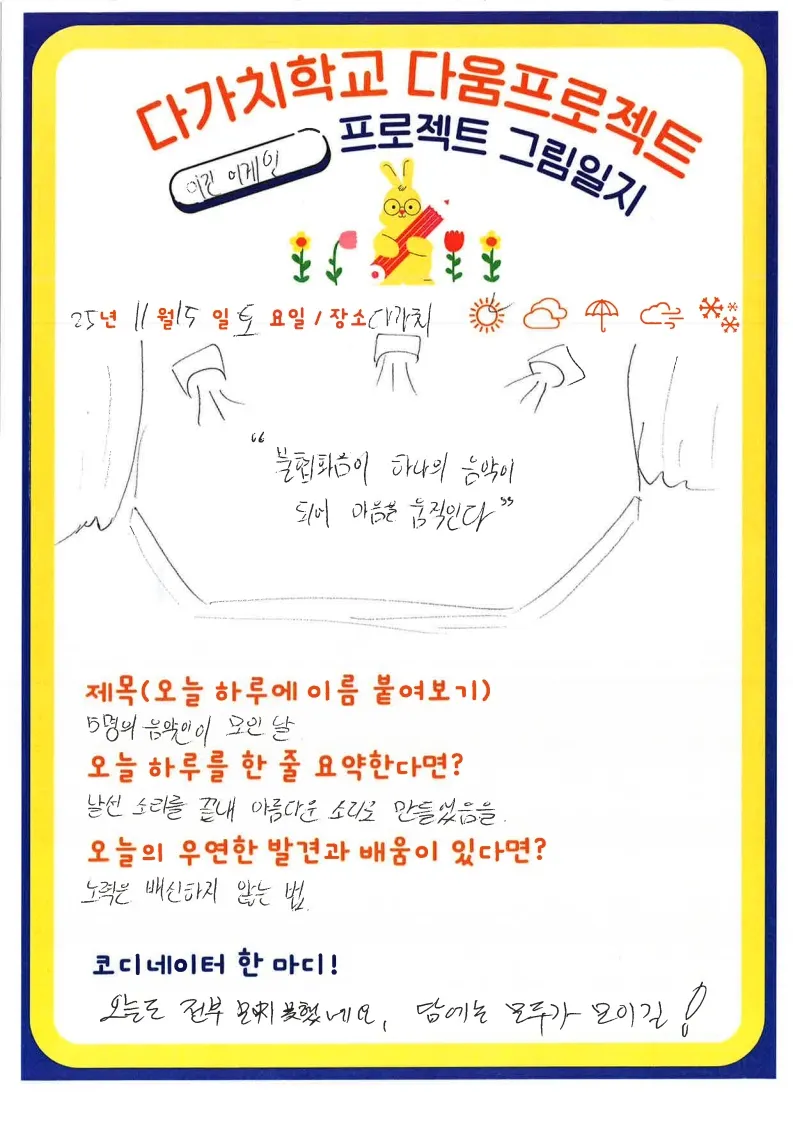 다가치학교 다움프로젝트
프로젝트 그림일지
25년 11월 15일 토요일 / 장소 다가치
“불협화음이 하나의 음악이
되어 마음을 움직인다”
제목(오늘 하루에 이름 붙여보기)
5명의 음악인이 모인 날
오늘 하루를 한 줄 요약한다면?
낯선 소리를 끝내 아름다운 소리로 만들었음을.
오늘의 우연한 발견과 배움이 있다면?
노력은 배신하지 않는 법.
코디네이터 한 마디!
오늘도 전부 모이지 못했네요, 담에는 모두가 모이길!